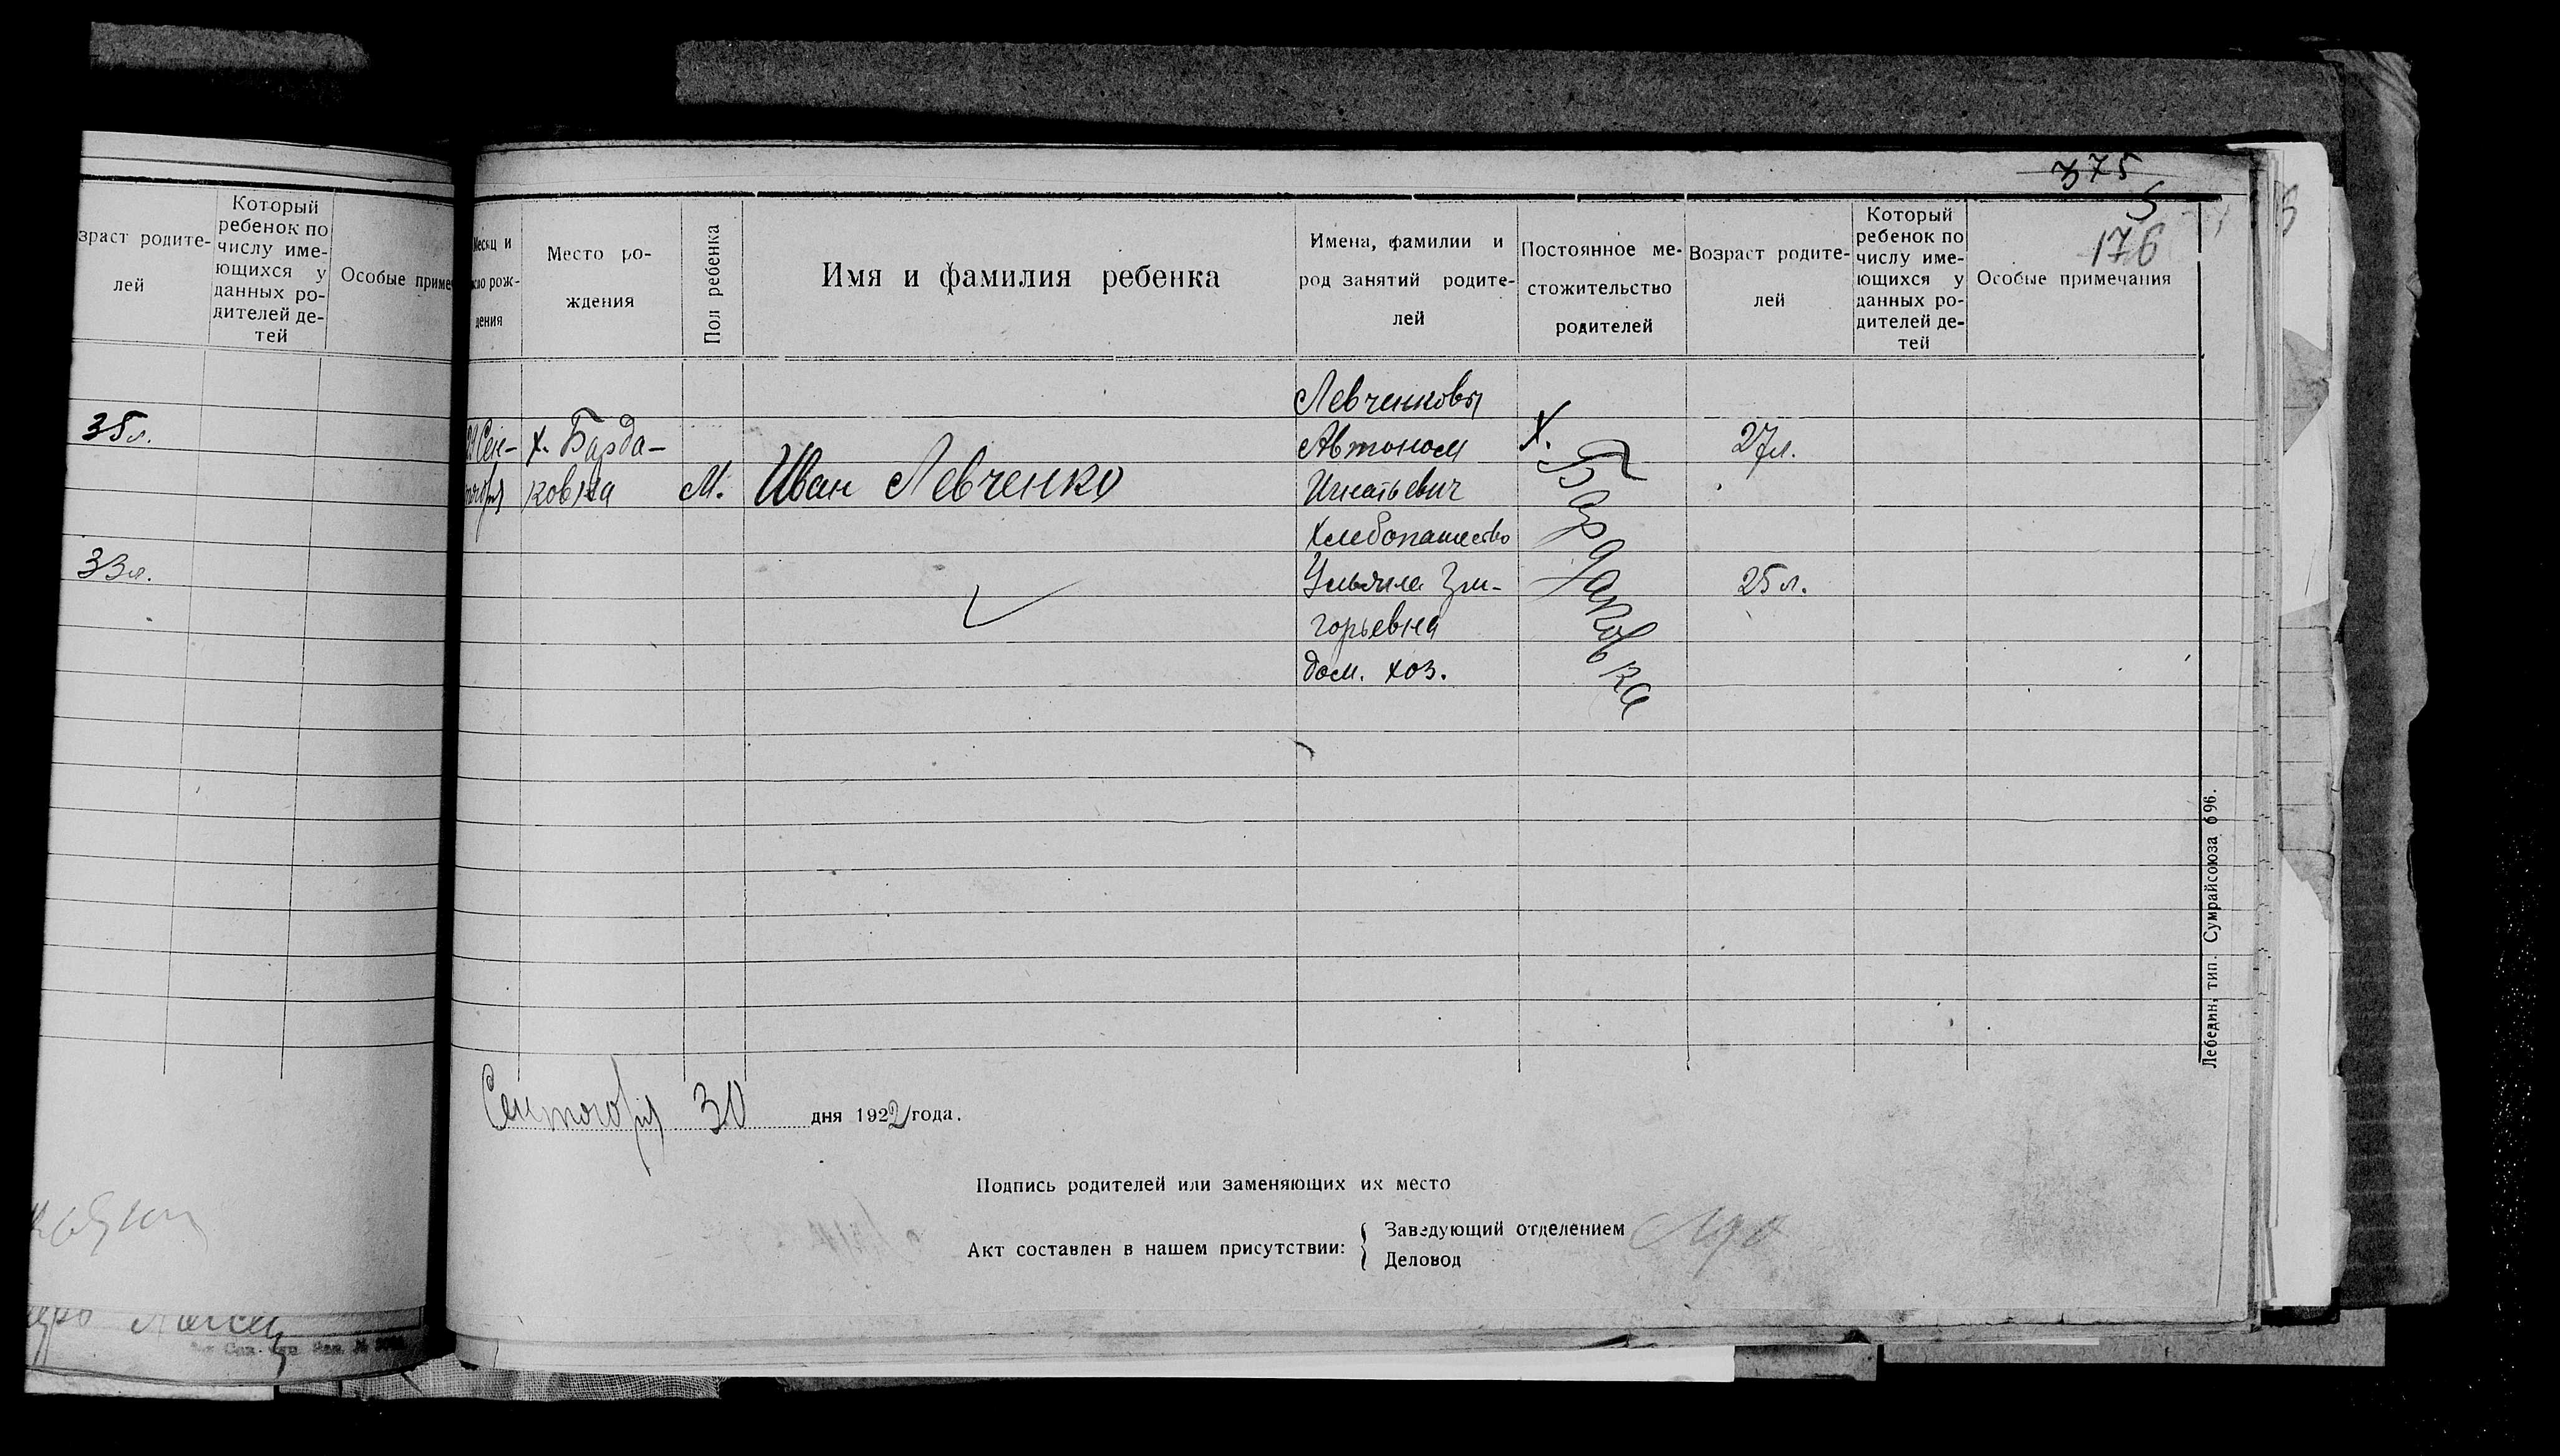 зраст родите-
лей
Который
ребенок по
числу име-
ющихся у
данных ро-
дителей де-
тей
Особые приме
35л.
33л.
375
5
176
Месяц и
сло рож-
дения
Место ро-
ждения
Пол ребенка
Имя и фамилия ребенка
Имена, фамилии и
род занятий родите-
лей
Постоянное ме-
стожительство
родителей
Возраст родите-
лей
Который
ребенок по
числу име-
ющихся у
данных ро-
дителей де-
тей
Особые примечания
29 Сен-
тября
х. Барда-
ковка
М.
Иван Левченко
Левченковы
Автоном
Игнатьевич
хлебопашество
Ульяна Гри-
горьевна
дом. хоз.
х. Бардаковка
27л.
25 л.
Сентября 30 дня 1922 года.
Подпись родителей или заменяющих их место
Акт составлен в нашем присутствии:
Заведующий отделением
Деловод
Лебедин, тип. Сумрайсоюза 696.